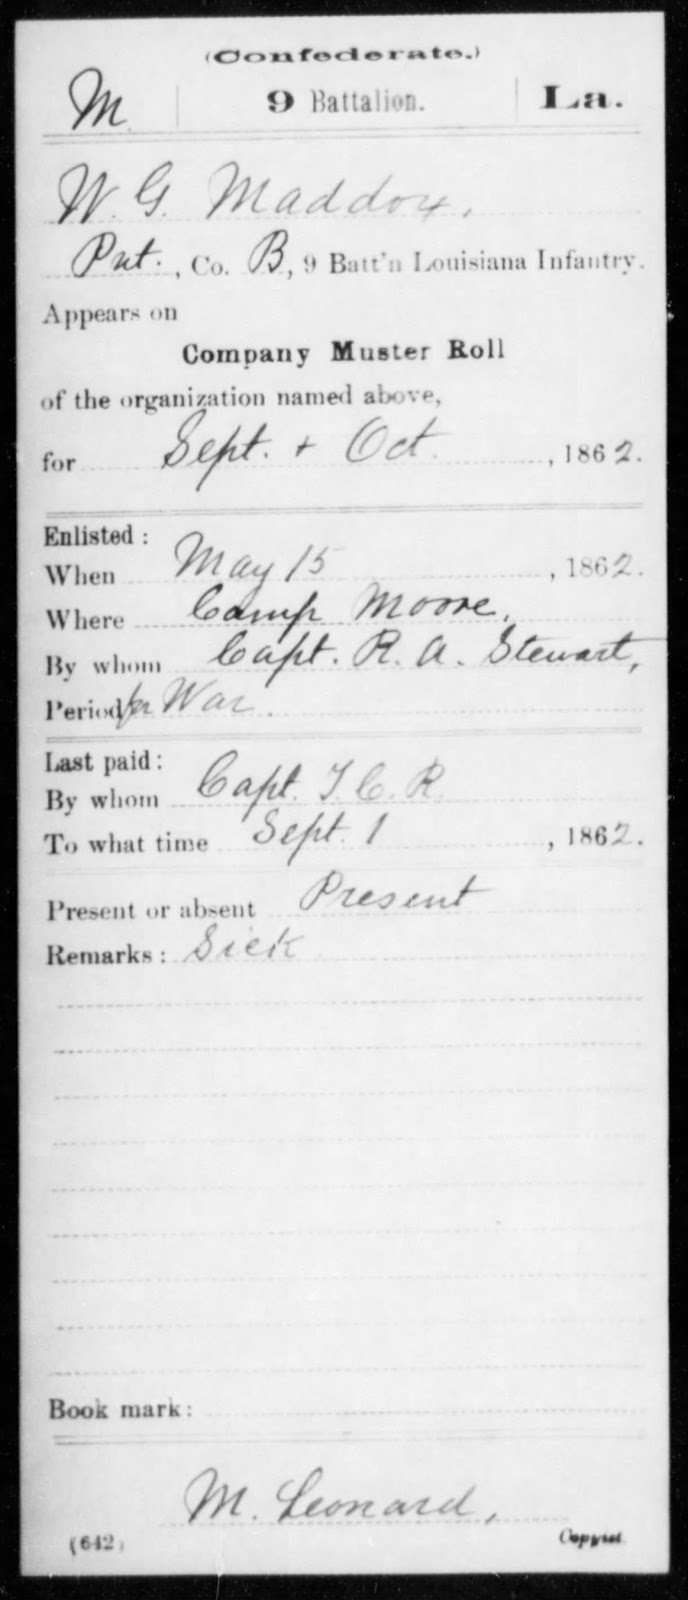 (Confederate.)
M 9 Battalion. La.
W. G. Maddox,
Pvt., Co. B, 9 Batt'n Louisiana Infantry.
Appears on
Company Muster Roll
of the organization named above,
for Sept. + Oct. , 1862.
Enlisted:
When May 15 , 1862.
Where Camp Moore,
By whom Capt. R. A. Stewart,
Period for War.
Last paid:
By whom Capt. T. C. R.
To what time Sept. 1 , 1862.
Present or absent Present
Remarks: Sick
Book mark:
M. Leonard,
(642) Copyist.